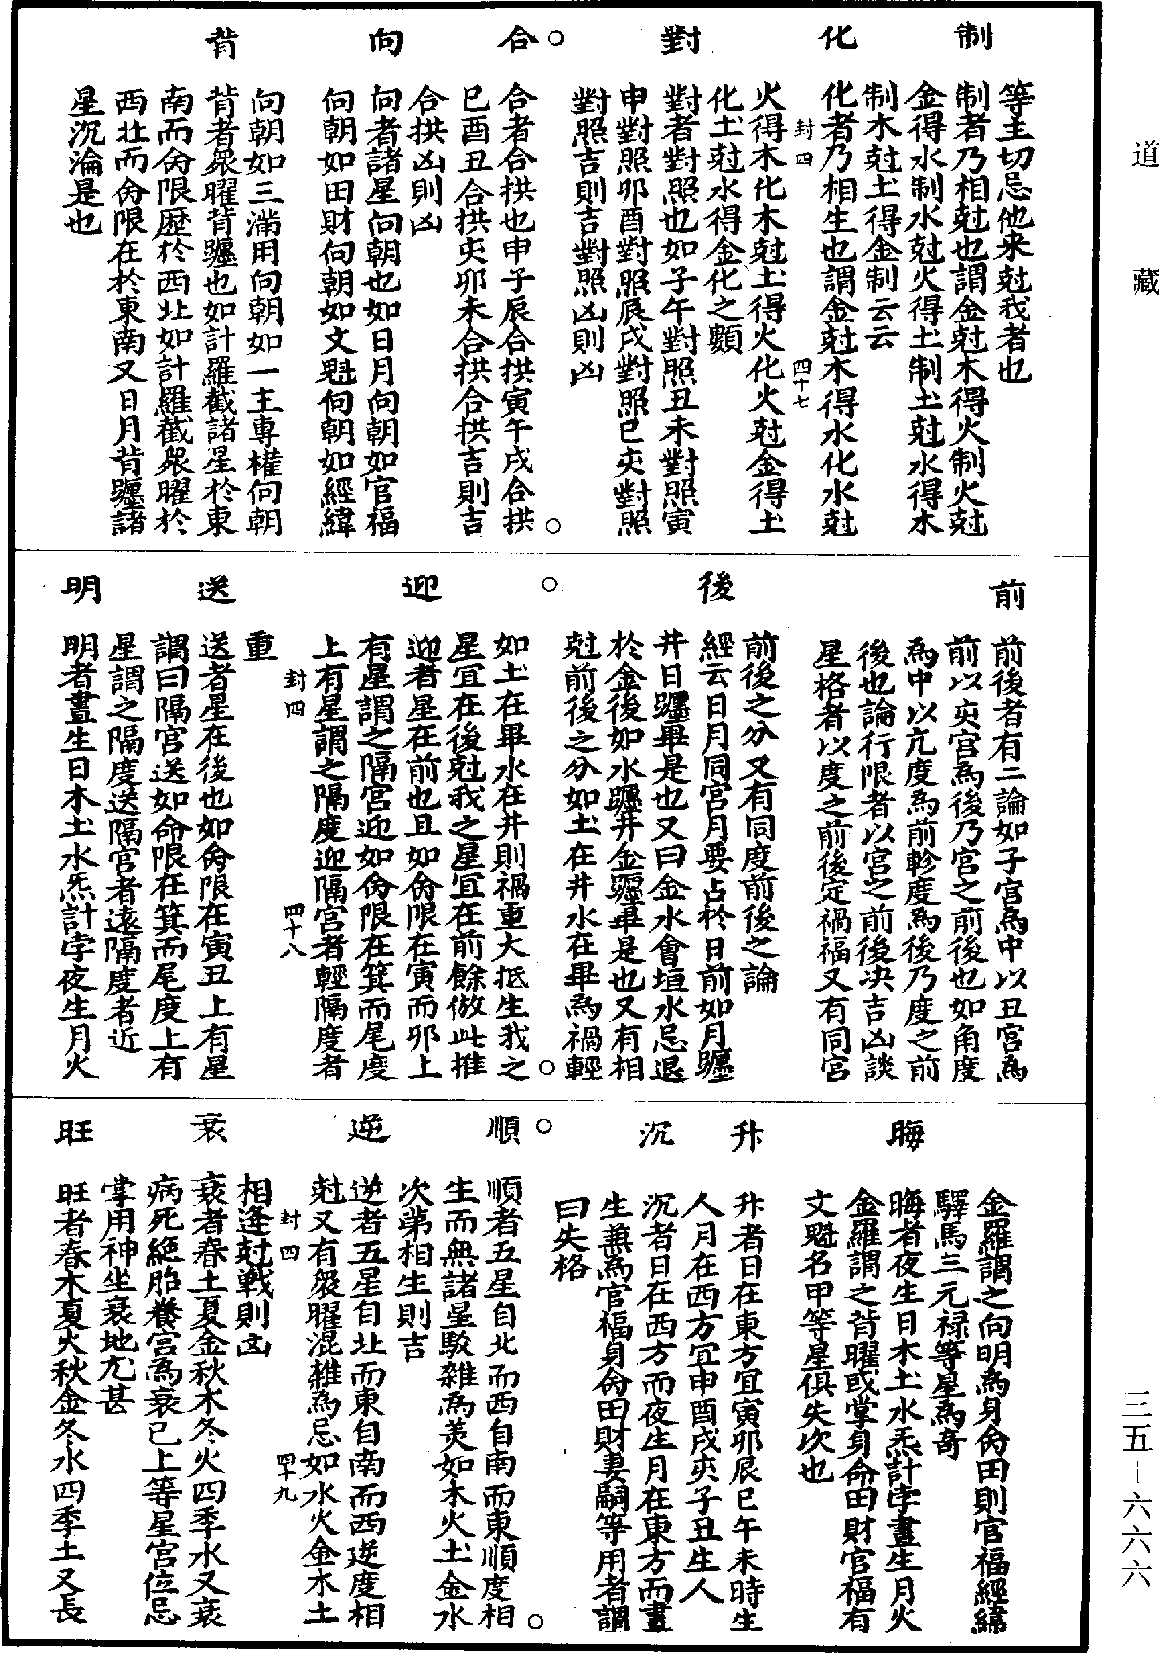 道藏
三五-六六六
等主切忌他來尅我者也
制
制者乃相尅也謂金尅木得火制火尅
金得水制水尅火得土制土尅水得木
制木尅土得金制云云
化
化者乃相生也謂金尅木得水化水尅
封四
四十七
火得木化木尅土得火化火尅金得土
化土尅水得金化之類
對
對者對照也如子午對照丑未對照寅
申對照卯酉對照辰戌對照巳亥對照
對照吉則吉對照凶則凶
合
合者合拱也申子辰合拱寅午戌合拱
巳酉丑合拱亥卯未合拱合拱吉則吉
合拱凶則凶
向
向者諸星向朝也如日月向朝如官福
向朝如田財向朝如文魁向朝如經緯
向朝如三滿用向朝如一主專權向朝
背
背者衆曜背躔也如計羅截諸星於東
南而命限歷於西北如計羅截衆曜於
西北而命限在於東南又日月背躔諸
星沉淪是也
前
前後者有二論如子宮為中以丑宮為
前以亥宮為後乃宮之前後也如角度
為中以亢度為前軫度為後乃度之前
後也論行限者以宮之前後决吉凶談
星格者以度之前後定禍福又有同宮
前後之分又有同度前後之論
後
經云日月同宮月要占於日前如月躔
井日躔畢是也又曰金水會垣水忌退
於金後如水躔井金躔畢是也又有相
尅前後之分如土在井水在畢為禍輕
如土在畢水在井則禍重大抵生我之
星宜在後尅我之星宜在前餘倣此推
迎
迎者星在前也且如命限在寅而卯上
有星謂之隔宮迎如命限在箕而尾度
上有星謂之隔度迎隔宮者輕隔度者
封四
四十八
重
送
送者星在後也如命限在寅丑上有星
謂曰隔宮送如命限在箕而尾度上有
星謂之隔度送隔宮者遠隔度者近
明
明者晝生日木土水炁計孛夜生月火
金羅謂之向明為身命田則官福經緯
驛馬三元祿等星為奇
晦
晦者夜生日木土水炁計孛晝生月火
金羅謂之背曜或掌身命田財官福有
文魁名甲等星俱失次也
升
升者日在東方宜寅卯辰巳午未時生
人月在西方宜申酉戌亥子丑生人
沉
沉者日在西方而夜生月在東方而晝
生兼為官福身命田財妻嗣等用者謂
曰失格
順
順者五星自北而西自南而東順度相
生而無諸星駁雜為美如木火土金水
次第相生則吉
逆
逆者五星自北而東自南而西逆度相
尅又有衆曜混雜為忌如水火金木土
封四
四十九
相逢尅戰則凶
衰
衰者春土夏金秋木冬火四季水又衰
病死絕胎養宮為衰已上等星宮位忌
掌用神坐衰地尤甚
旺
旺者春木夏火秋金冬水四季土又長